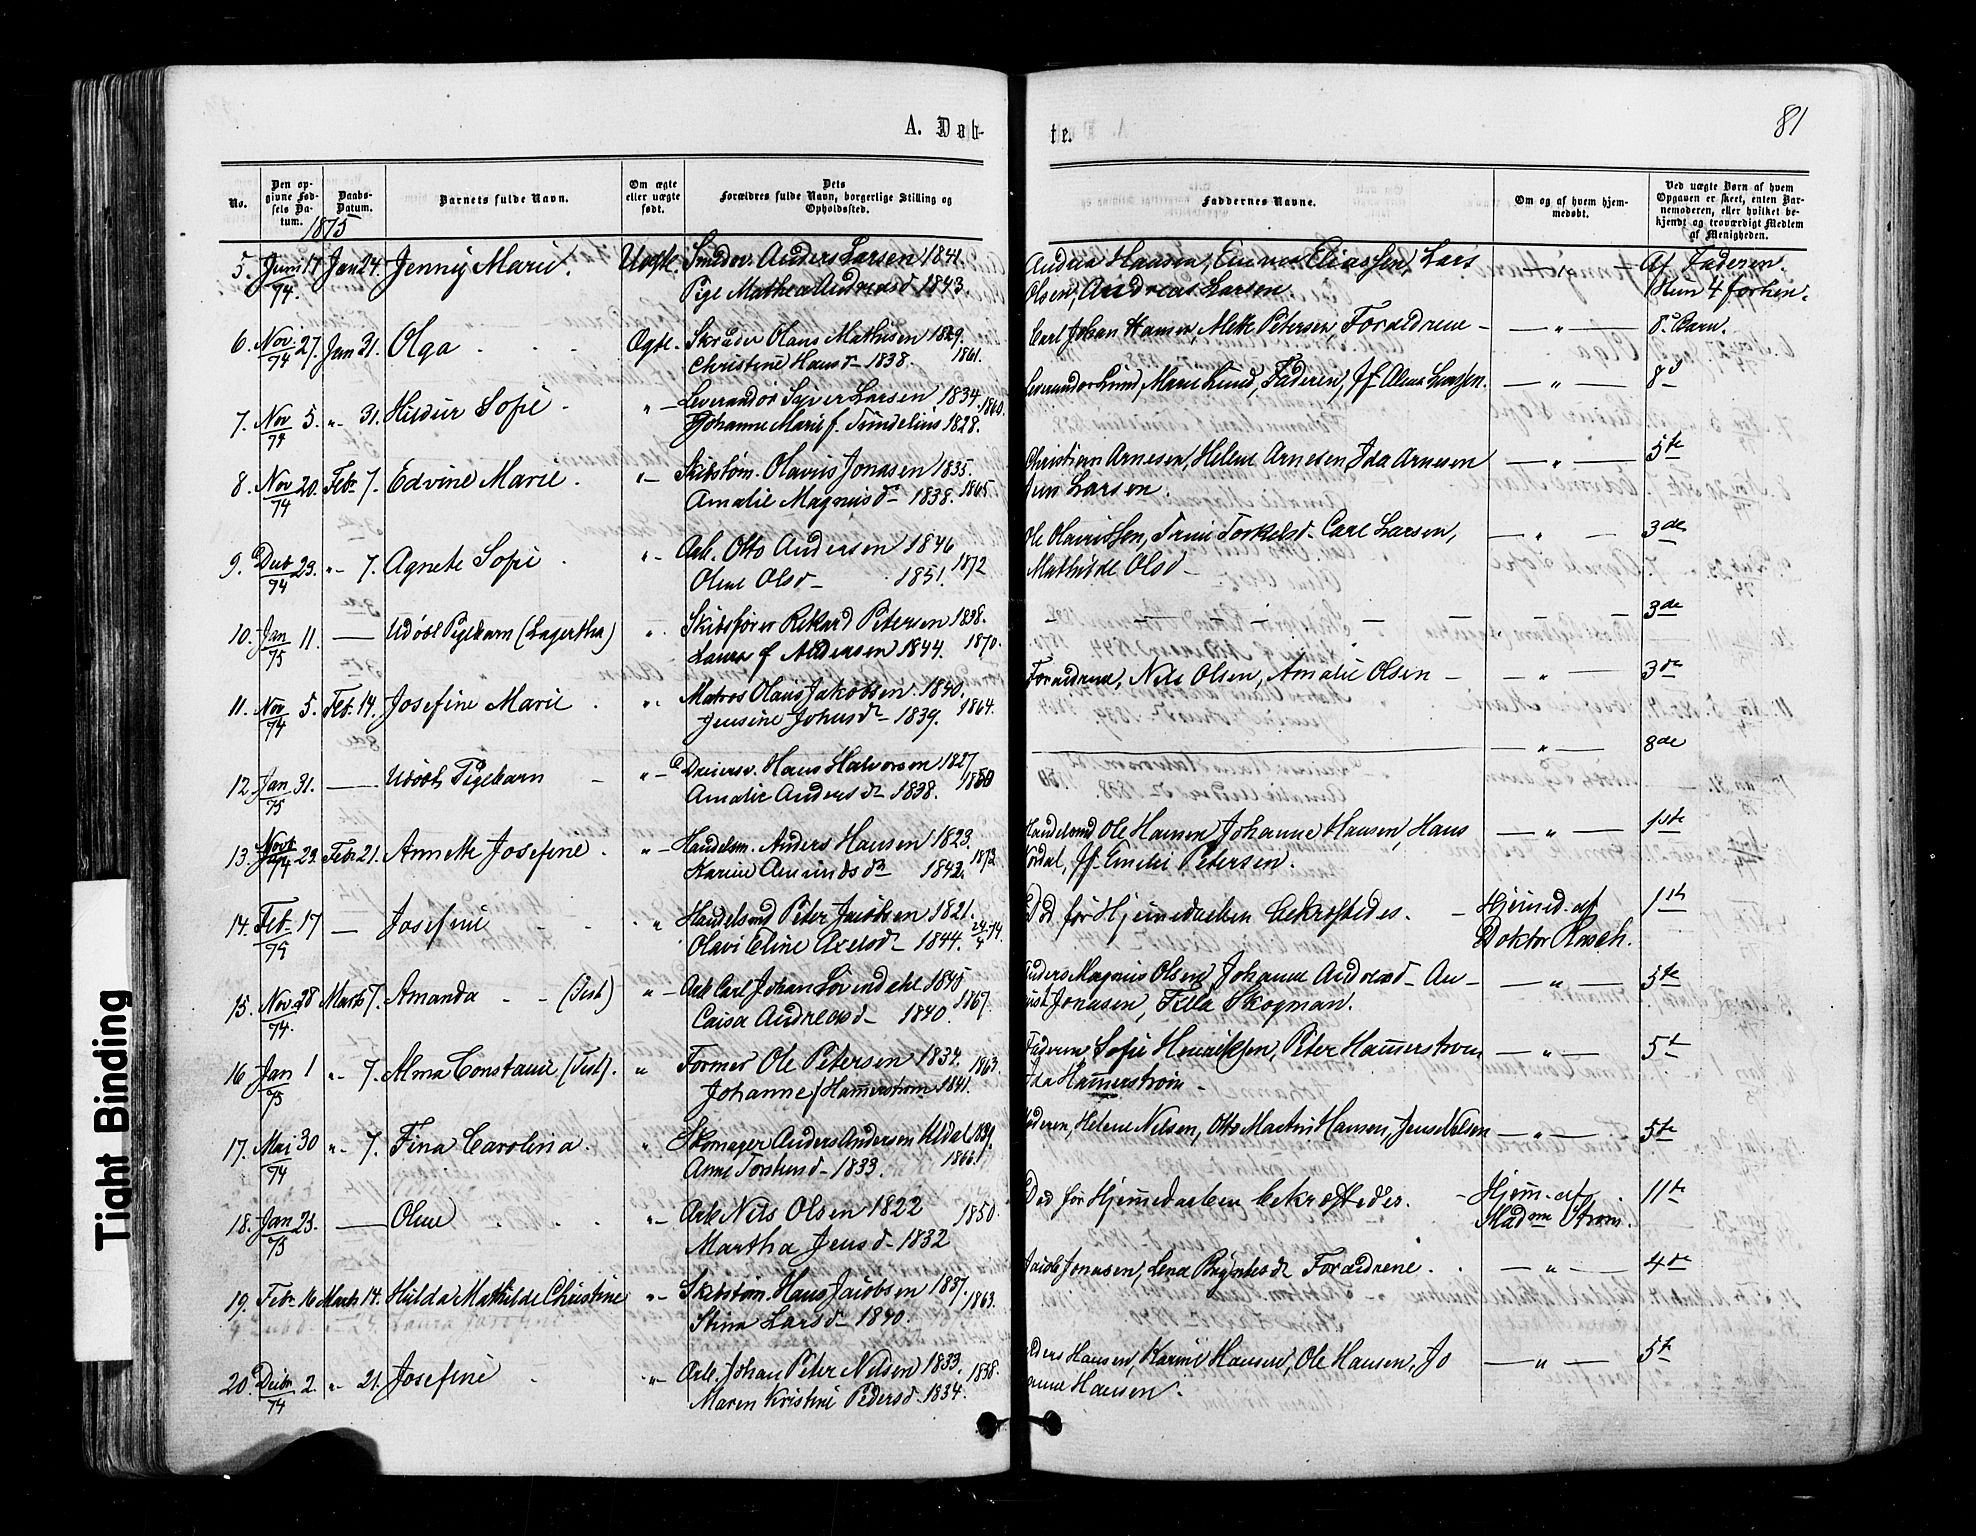 A. Døb-
te.
81
No.
Den op-
givne Fød-
sels Da-
tum.
Daabs-
Datum.
Barnets fulde Navn.
Om ægte
eller uægte
født.
Dets
Forældres fulde Navn, borgerlige Stilling og
Opholdssted.
Faddernes Navne.
Om og af hvem hjem-
medøbt.
Ved uægte Børn af hvem
Opgaven er skeet, enten Bar-
nemoderen, eller hvilket be-
kjendt og troværdigt Medlem
af Menigheden.
1875
5. Juni 17 Jan 24. Jenny Marie. Uægte. Anders Larsen 1841. Hansen, Eliassen, Lars Af Faderen.
74. Pige Mathea Andreasd 1843. Olsen, Andreas Larsen.
6. Nov 27. Jan 31. Olga Ægte. Olaus Mathisen 1829. Carl Johan Hansen, Petersen, Forældrene — " — 8de Barn.
74 Christine Hansd 1838. 1861.
7. Nov 5. " 31. Hildur Sofie " Leverandør Larsen 1834. 1860. Leverandør Lund, Marie Lund, Faderen, — " — 8d
74 Johanne Marie f. 1828.
8. Nov 20. Feb. 7. Edvine Marie. " Skibstøm. Olavus Jonasen 1835. Christian Arnesen, Helene Arnesen Ida Arnesen — " — 5te
74 Amalie Magnusd 1838. 1865 Larsen.
9. Decb 23. " 7. Agnete Sofie " Arb. Otto Andersen 1846 Ole Olavissen, Trine Torkelsd. Carl Larsen, — " — 3de
74 Oline Olsd 1851. 1872 Mathilde Olsd
10. Jan 11. — Udøbt Pigebarn (Lagertha) " Skibsfører Rikard Petersen 1838. 3de
75 Laura f Andersen 1844. 1870.
11. Nov 5. Feb. 14. Josefine Marie " Matros Olaus Jakobsen 1840. Forældrene, Nils Olsen, Amalie Olsen — " — 3de
74 Jensine Johnsd 1839. 1864.
12. Jan 31. — Udøbt Pigebarn " Hans Halvorsen 1827 — " — 8de
75 Amalie Andersd 1838. 1860
13. Novb 23. Feb 21. Annette Josefine. " Handelsm. Anders Hansen 1823. Handelsmd Ole Hansen Johanne Hansen, Hans — " — 1ste
74 Karine Amundsd 1842. 1873. Emelie Petersen.
14. Feb 17 — Josefine " Handelsmd Peter Jacobsen 1821. Død før Hjemmedaaben bekræftedes. Hjemmed. af 1ste
75 Olavi Eline Axelsd 1844. Doktor Rasch.
15. Nov 28 Marts 7. Amanda (Tist) " Arb Carl Johan Løvendahl 1845 Anders Magnus Olsen, Johanne Andreasd — " — 5te
74. Caisa Andreasd 1840. 1867. Jonasen, Skogman.
16. Jan 1 " 7. Alma Constance (Tist). " Former Ole Petersen 1834. 1863. Faderen, Sofie Henriksen, Peter Hammerstrøm — " — 5te
75 Johanne f Hammerstrøm 1841. Ida Hammerstrøm
17. Mai 30 " 7. Fina Carolina. " Skomager Anders Andersen Faderen, Helene Nilsen, Otto Martin Hansen, Jens Nilsen — " — 5te
74 Anne 1833. 1866.
18. Jan 23. — Oline " Arb Nils Olsen 1822 1850. Død før Hjemmedaaben bekræftedes. Hjem. af 11te
75 Martha Jensd 1832 Madme Strøm.
19. Feb 16 Marts 14. Hulda Mathilde Christine " Skibstøm. Hans Jacobsen 1837. 1863. Jacob Jonasen, Lena Forældrene. — " — 4de
Stina Larsd 1840.
20. Decbr 2. " 21. Josefine " Arb. Johan Peter Nilsen 1833. 1858. Anders Hansen, Karine Hansen, Ole Hansen, Jo — " — 5te
74 Maren Kristine Pedersd. 1834. hanne Hansen.
Tight Binding